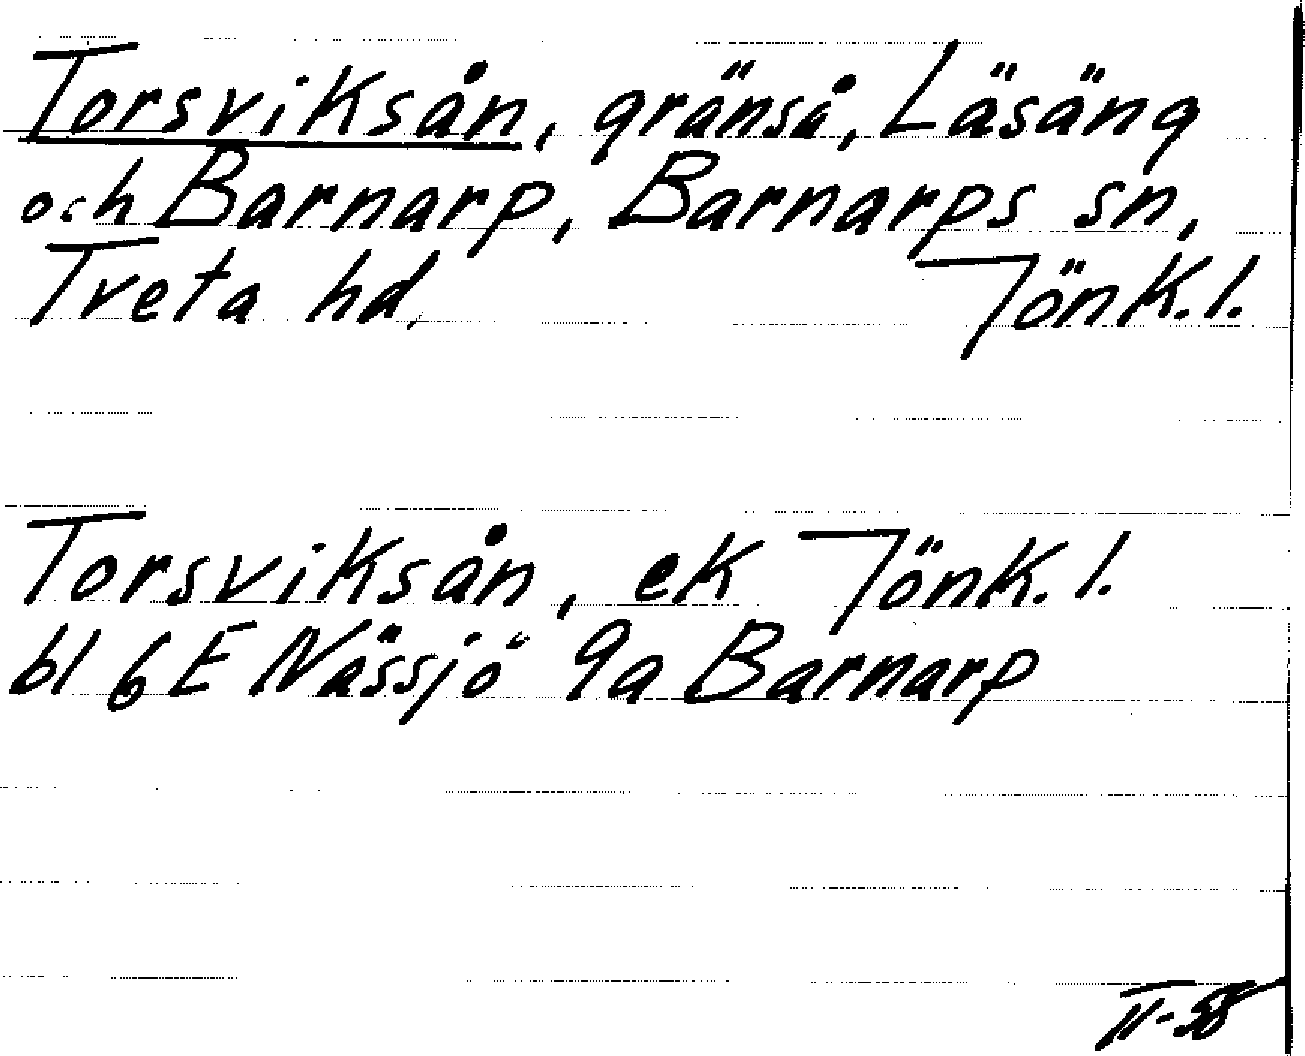 Torsviksån, gränså, Läsäng
och Barnarp, Barnarps sn,
Tveta hd, Jönk.l.
Torsviksån, ek Jönk.l.
bl 6E Nässjö 9a Barnarp